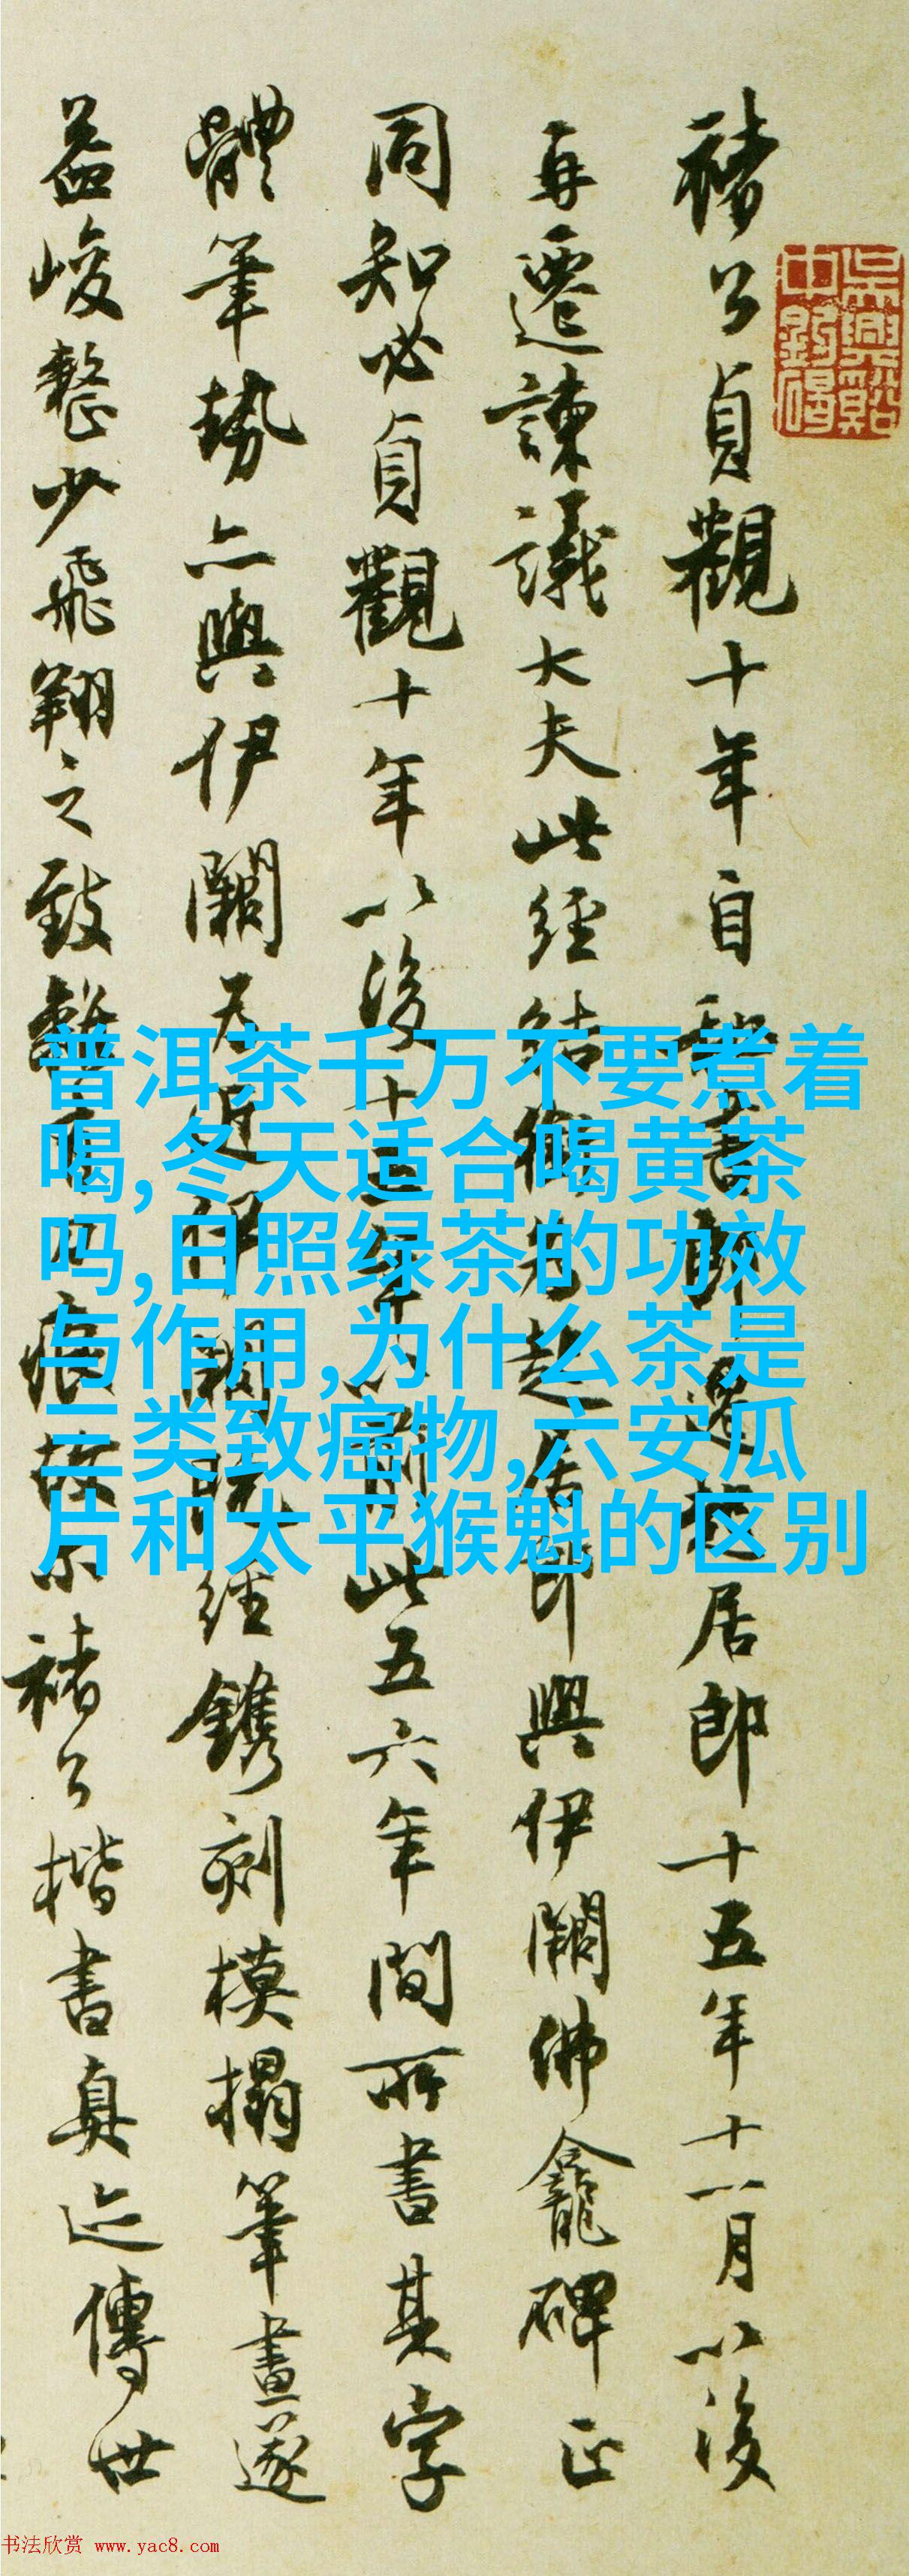 褚公貞觀十年自秘書郎遷起居郎十五年十一月以後
再遷諫議大夫此經結銜為起居郎與伊闕佛龕碑正
同知必貞觀十年以後十五年以前此五六年間所書其字
體筆勢亦與伊闕为近伊闕既經鐫刻模搨筆畫遂
益峻整少飛翔之致
褚公楷書真迹傳世
普洱茶千万不要煮着
喝,冬天适合喝黄茶
吗,日照绿茶的功效
与作用,为什么茶是
二类致癌物,六安瓜
片和太平猴魁的区别
书法欣赏 www.yac8.com